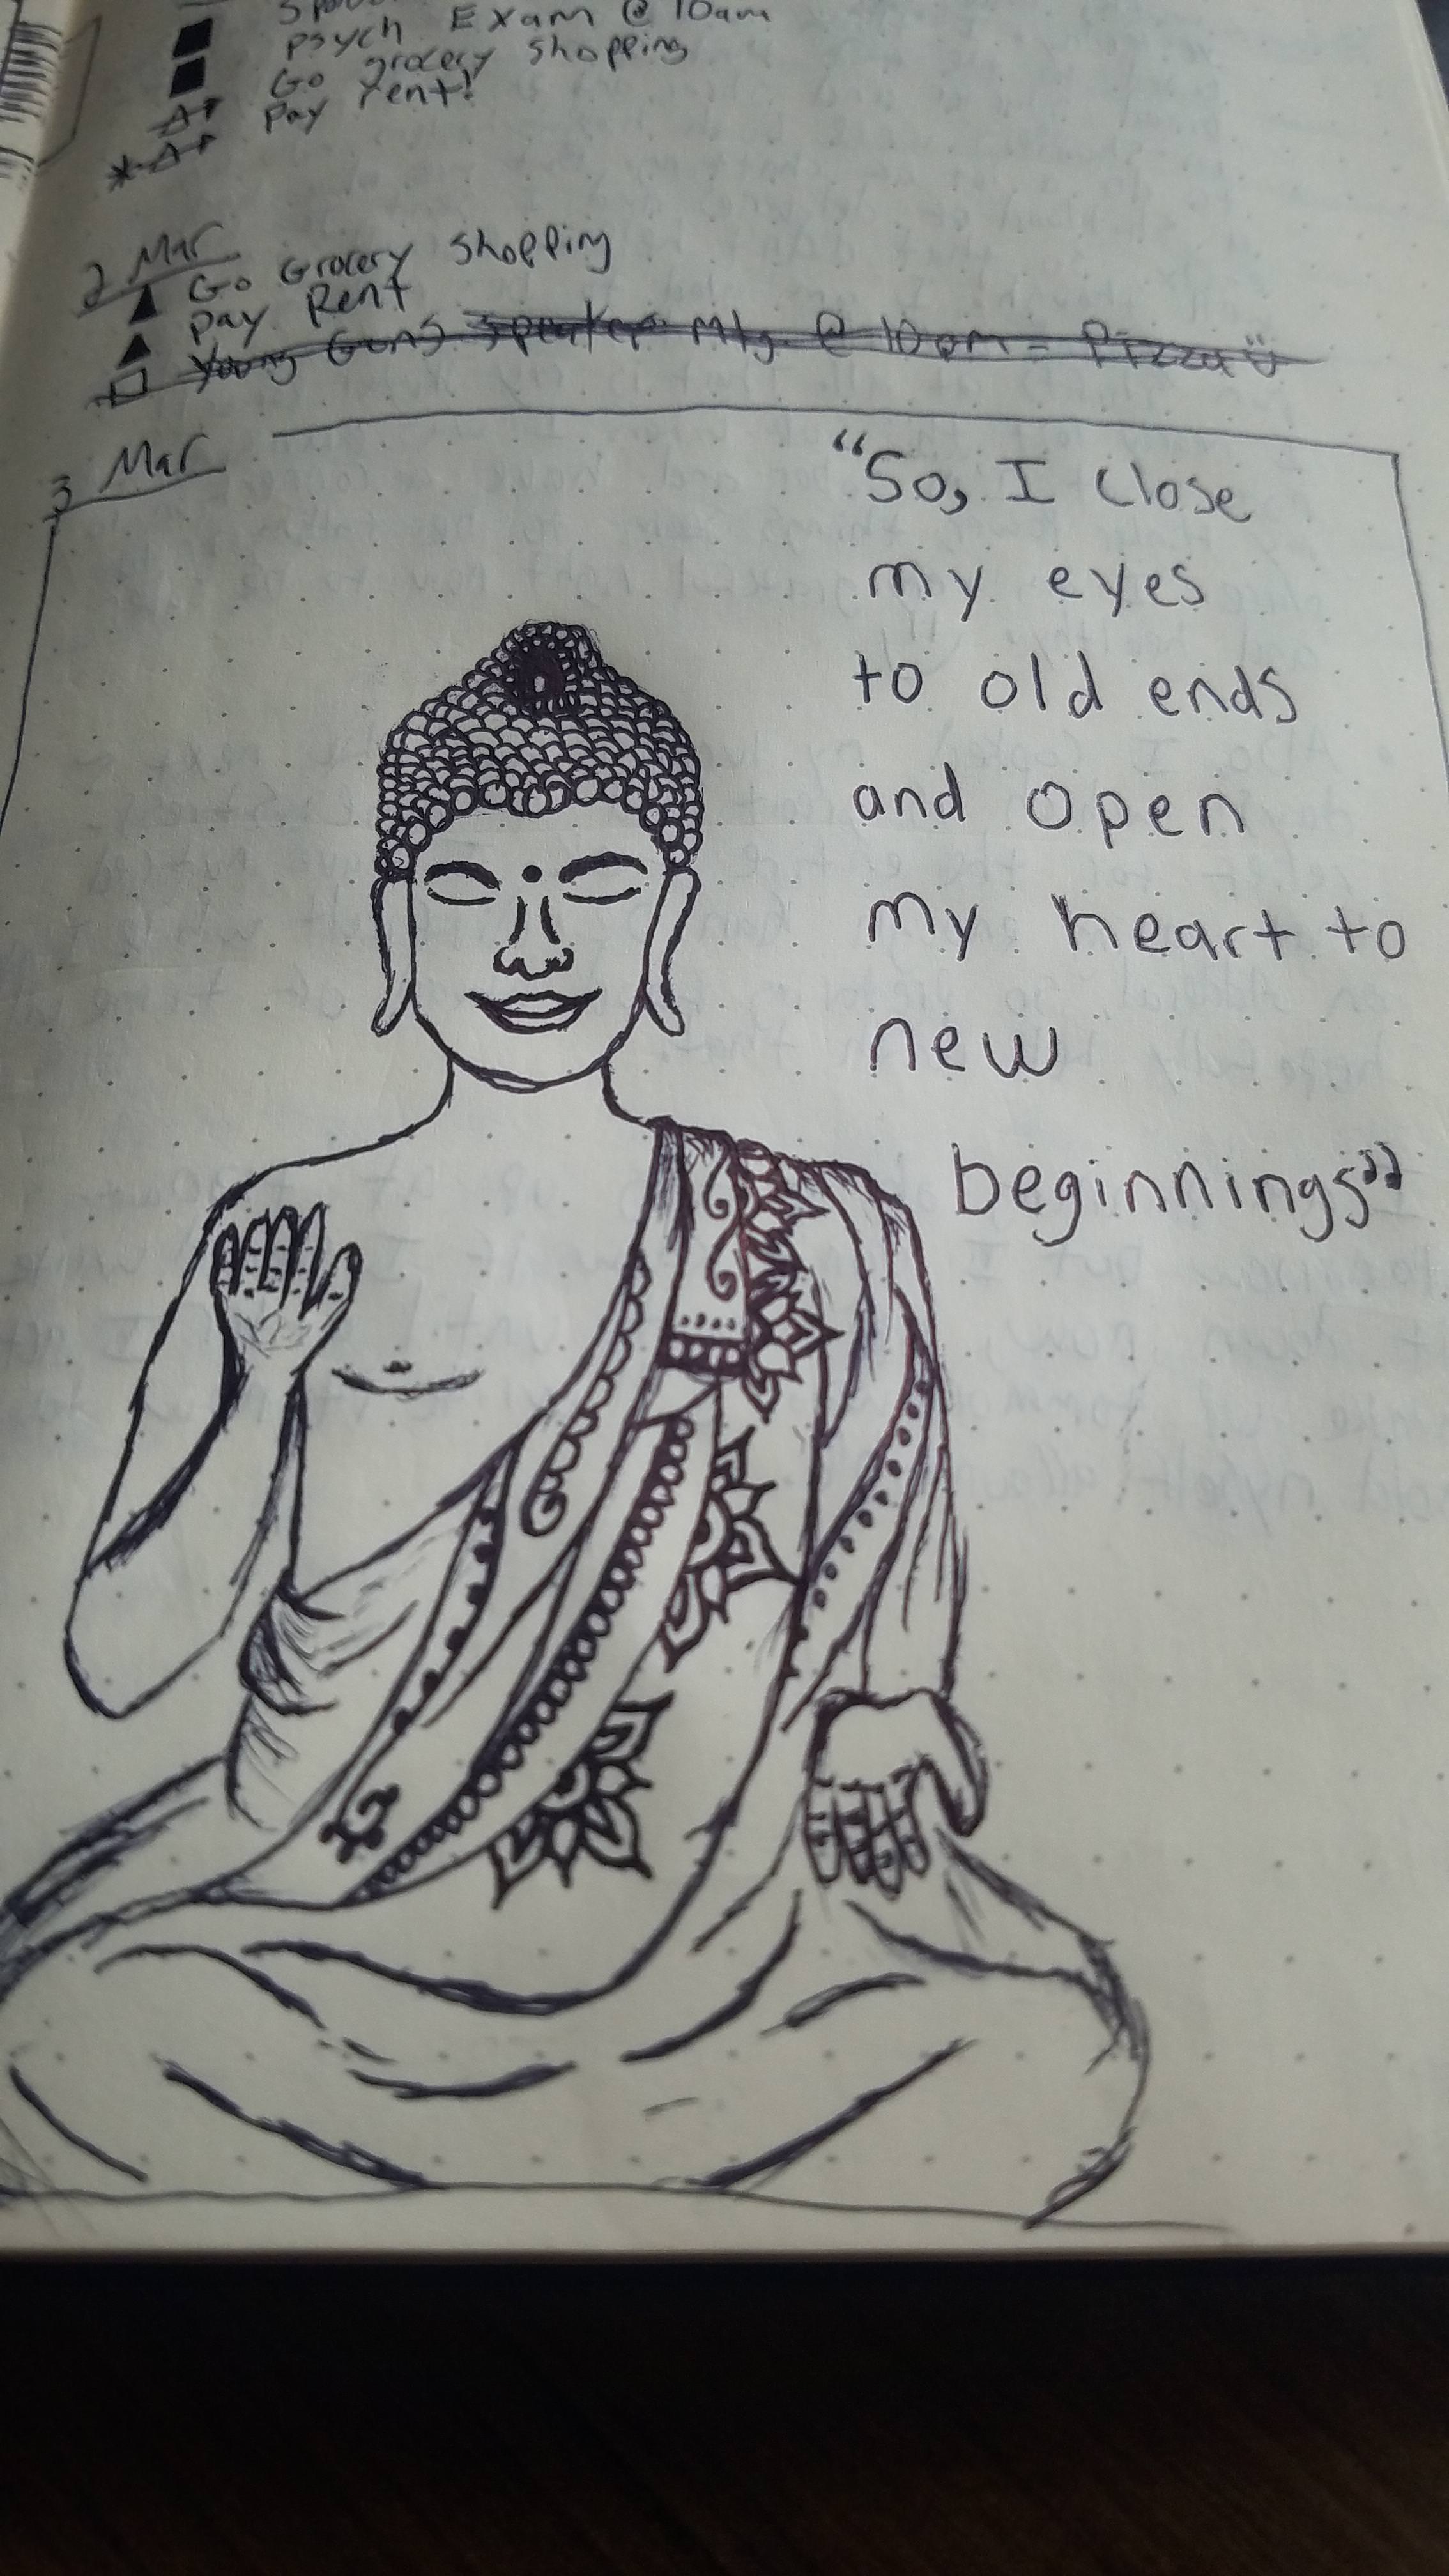 psych Exam @ 10am
Go grocery shopping
Pay rent!
2 Mar
Go Grocery Shopping
Pay Rent
Young Guns Speaker Mtg. @ 10pm = Pizza
3 Mar
“So, I close
my eyes
to old ends
and open
my heart to
new
beginnings”